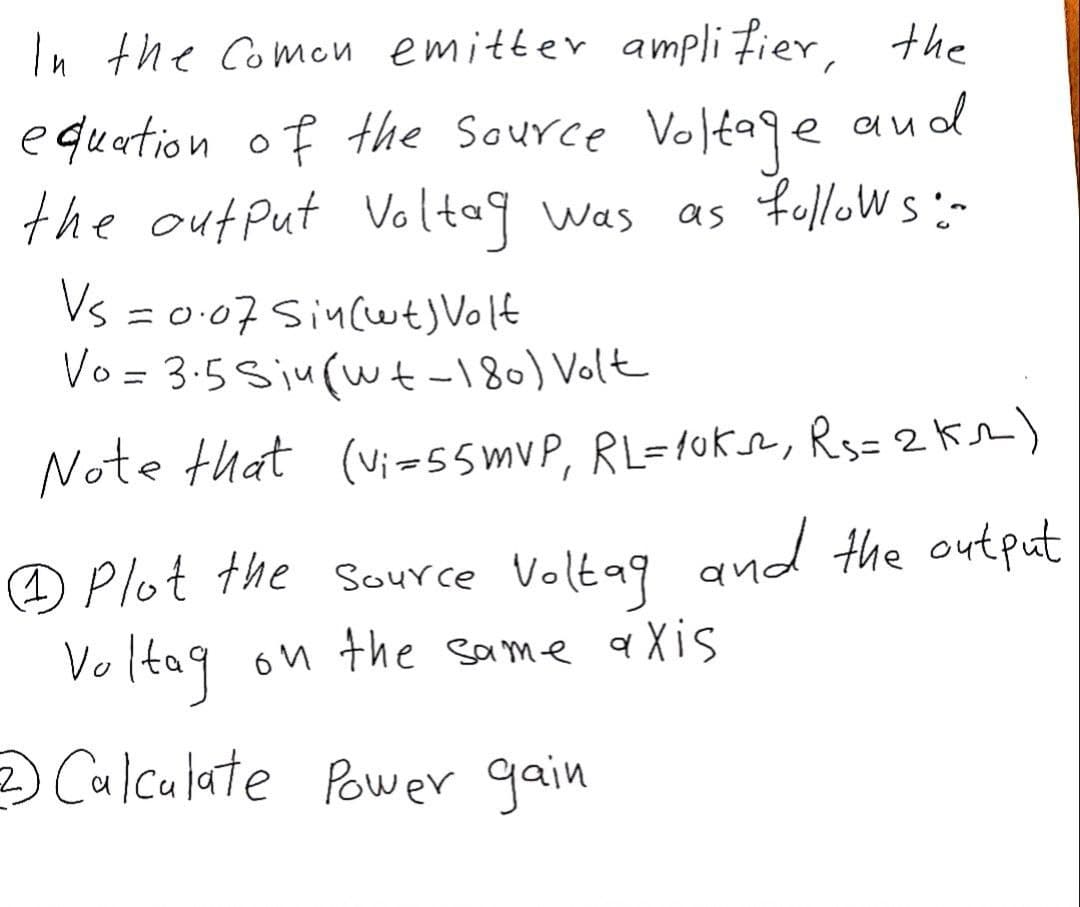 In the Comon emitter amplifier, the
equation of the source Voltage and
the output Voltag was as follows:-
Vs = 0.07 Sin(wt)Volt
Vo = 3.5 Sin(wt-180) Volt
Note that (Vi=55mVP, RL=10KΩ, Rs=2KΩ)
① Plot the source Voltag and the output
Voltag on the same aXis
② Calculate Power gain